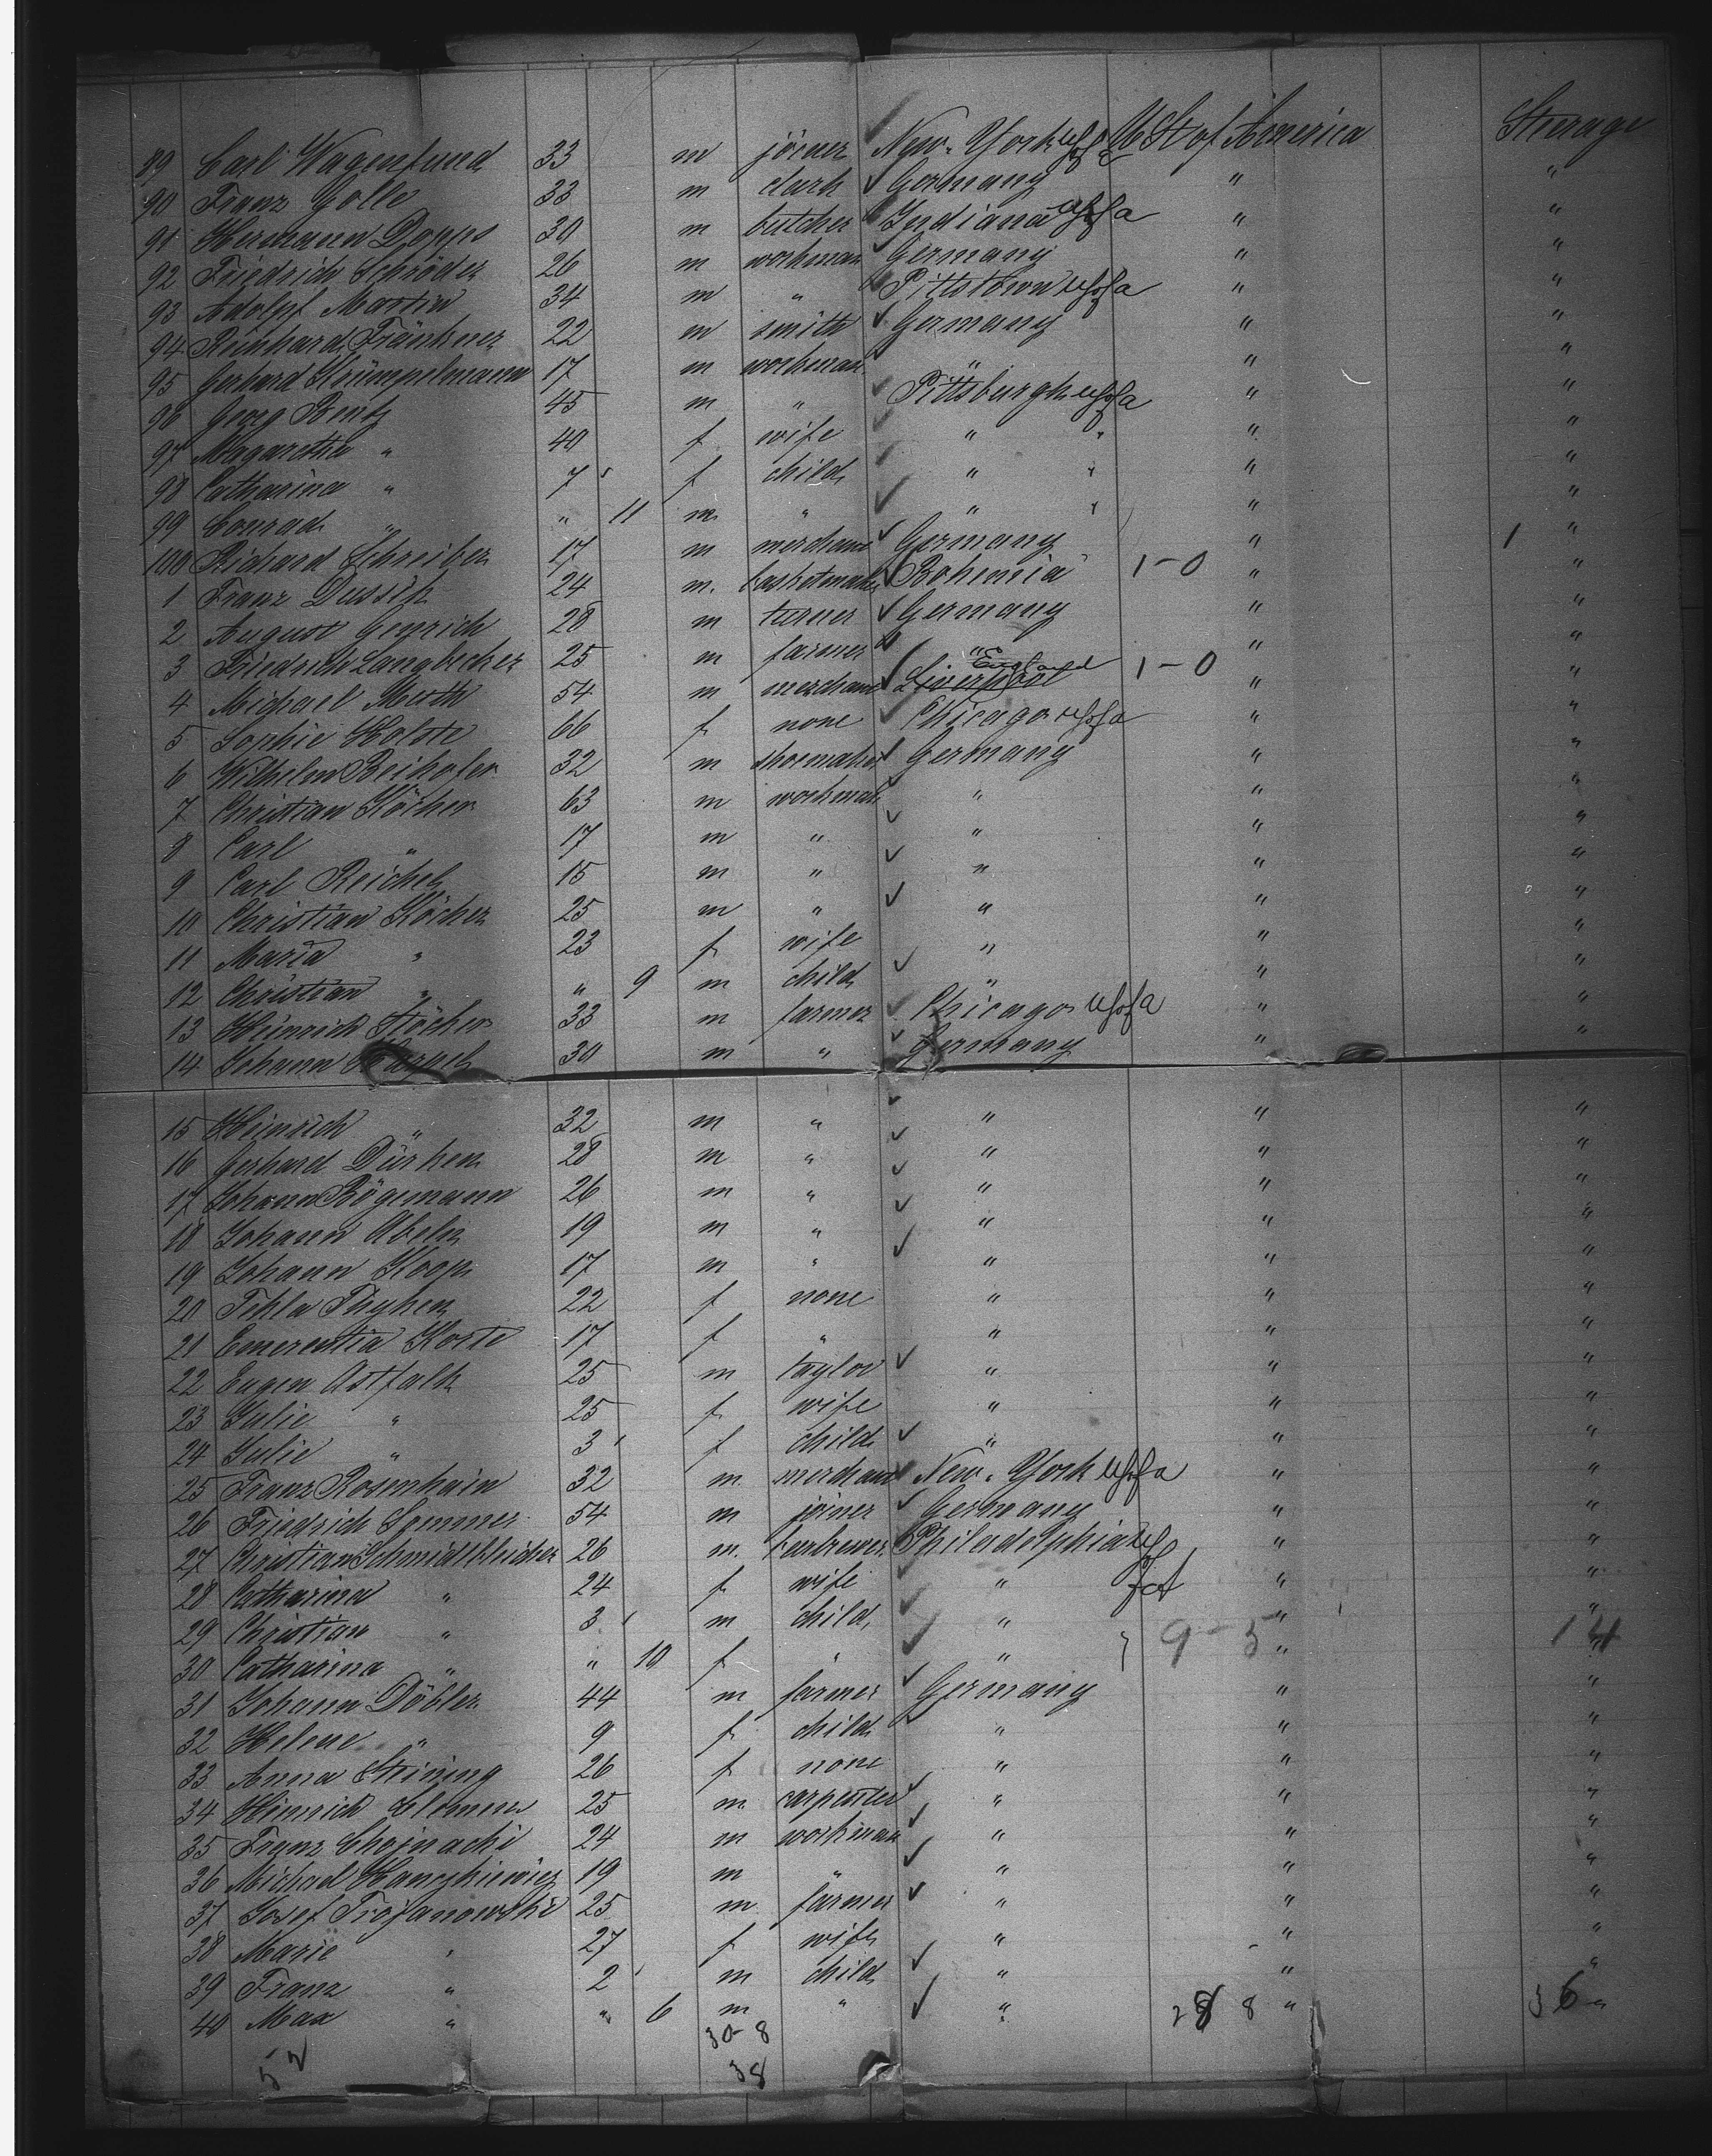 89 Carl Wagenfund 33 m joiner New-York USofA U St of America Steerage
90 Franz Golle 33 m clark Germany " "
91 Hermann Dopps 30 m butcher Indiana USofA " "
92 Friedrich Schröder 26 m workman Germany " "
93 Adolpf Martin 34 m " Pittstown USofA " "
94 Reinhard Fränkner 22 m smith Germany " "
95 Gerhard Krümpelmann 17 m workman " " "
96 Georg Bentz 45 m " Pittsburgh USofA " "
97 Magarethe " 40 f wife " " " "
98 Catharina " 7 f child " " " "
99 Conrad " " 11 m " " " " "
100 Richard Schreiber 17 m merchant Germany " 1 "
1 Franz Dussik 24 m. basketmaker Bohemia 1-0 " "
2 August Genrich 28 m turner Germany " "
3 Friedrich Langbecker 25 m farmer " " "
4 Michael Muth 54 m merchant Liverpool England 1-0 " "
5 Sophie Holste 66 f none Chicago USofA " "
6 Wilhelm Beihofer 32 m shoemaker Germany " "
7 Christian Köcher 63 m workman " " "
8 Carl " 17 m " " " "
9 Carl Reichel 15 m " " " "
10 Christian Köcher 25 m " " " "
11 Maria " 23 f wife " " "
12 Christian " " 9 m child " " "
13 Heinrich Köcher 33 m farmer Chicago USofA " "
14 Johann 30 m " Germany " "
15 Heinrich " 32 m " " " "
16 Gerhard Dürken 28 m " " " "
17 Johann Bögemann 26 m " " " "
18 Johann Abeln 19 m " " " "
19 Johann Koop 17 m " " " "
20 Tekla Thyken 22 f none " " "
21 Emerentia Korte 17 f " " " "
22 Eugen Astfalk 25 m taylor " " "
23 Julie " 25 f wife " " "
24 Julie " 3 f child " " "
25 Franz Rosenhain 32 m. merchant New-York USofA " "
26 Friedrich Sommer 54 m joiner Germany " "
27 Christian Schmidtbleicher 26 m. Philadelphia US " "
28 Catharina " 24 f wife " of A " "
29 Christian " 3 m child " " "
30 Catharina " " 10 f " " " 9-5 " 14 "
31 Johann Döbler 44 m farmer Germany " "
32 Helene " 9 f child " " "
33 Anna Steining 26 f none " " "
34 Heinrich Clemens 25 m carpenter " " "
35 Franz Chojnacki 24 m workman " " "
36 Michael 19 m " " " "
37 Josef Trojanowski 25 m farmer " " "
38 Marie " 27 f wife " " "
39 Franz " 2 m child " " "
40 Max " " 6 m " " 28 8 " 36 "
30-8
52 38